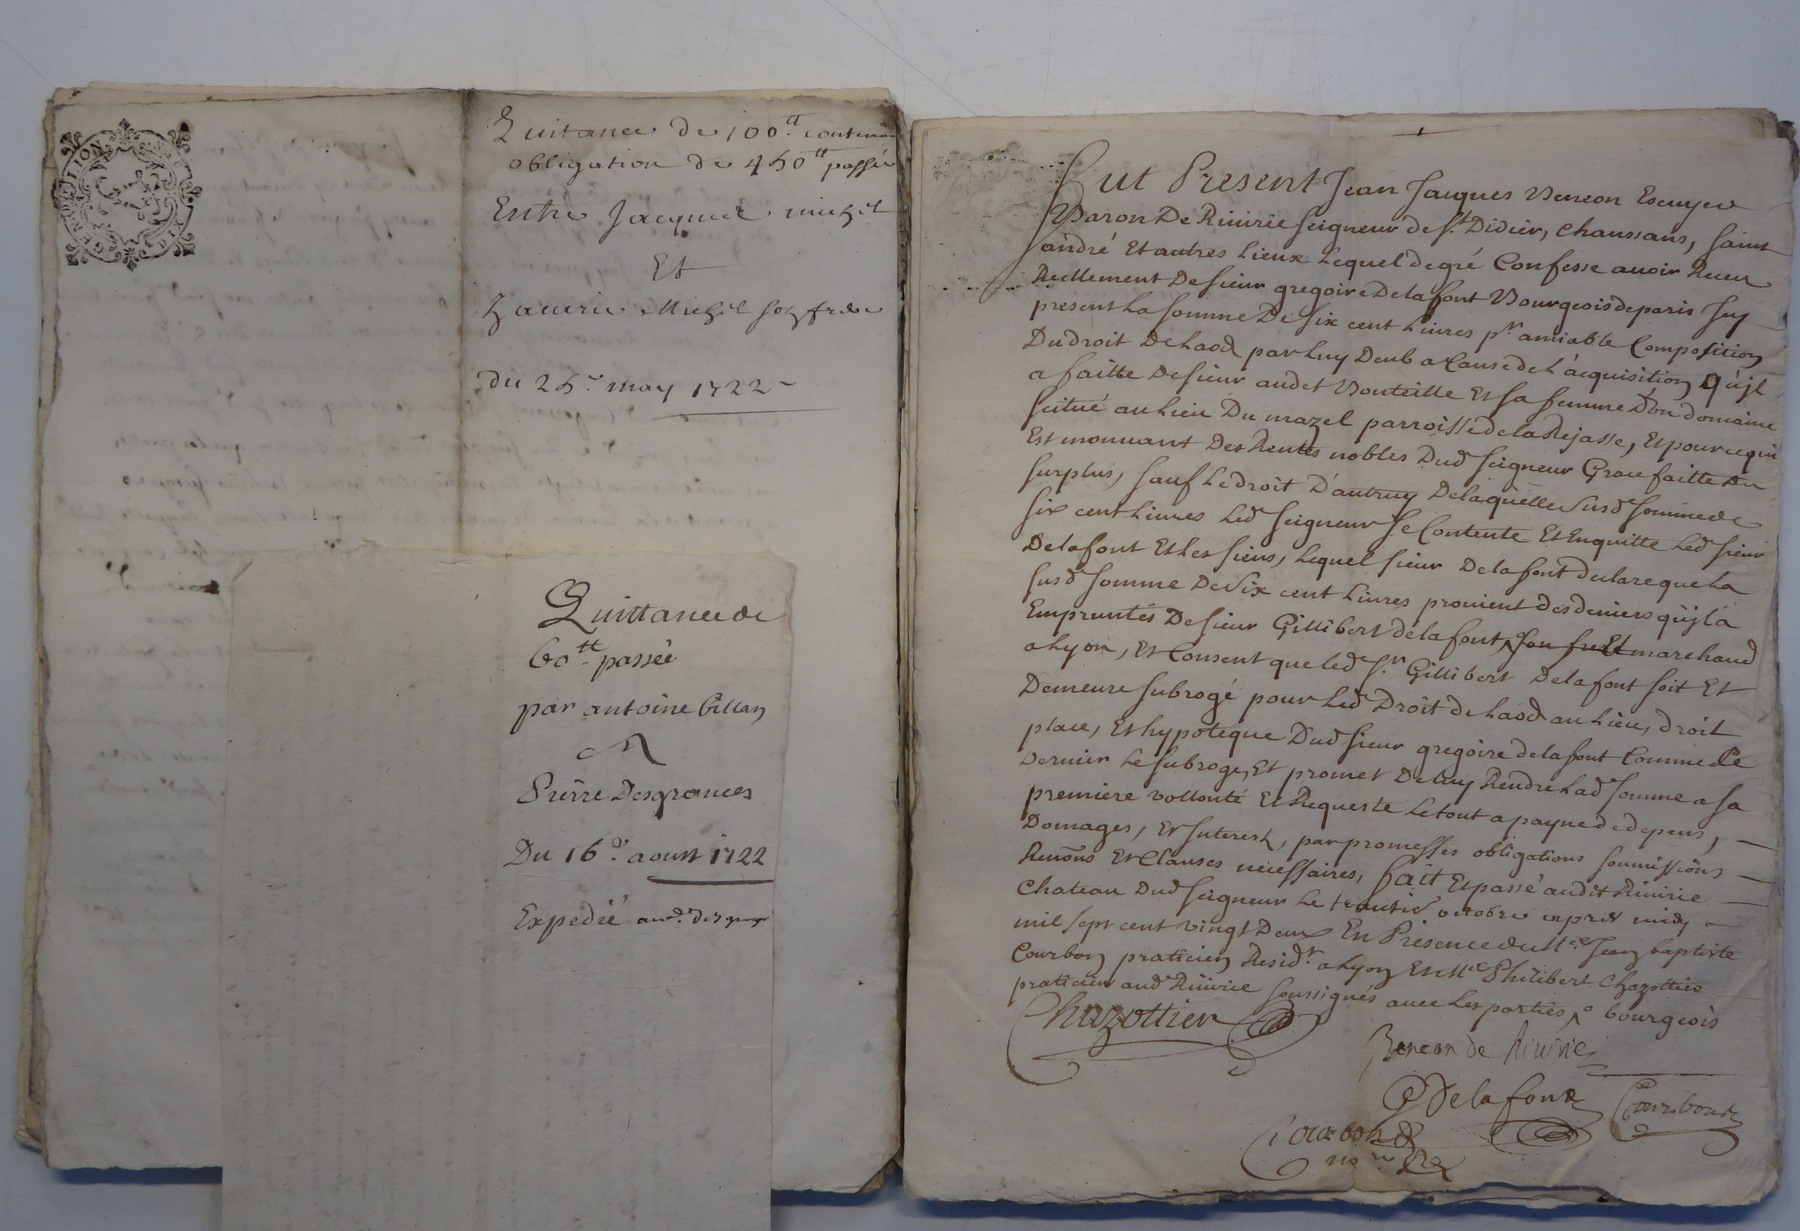 GENERALITE DE LION
DIX
Quittance de 100ᵗᵗ conten
obligation de 450ᵗᵗ passée
Entre Jacques michel
Et
Zacarie Michel son frere
du 25ᵉ may 1722
Quittance de
60ᵗᵗ passée
par antoine Gillan
A
Pierre Desgranges
Du 16ᵉ aoust 1722
Expedié aud. desgranges
Fut Present Jean Jacques Beneon Escuyer
Baron De Riuirie seigneur de sᵗ Didier, chaussans, saint
andré Et autres Lieux Lequel de gré Confesse auoir Receu
Reellement De sieur gregoire Delafont Bourgeois de paris Jcy
present La somme De six cent Liures pʳ amiable Composition
Du droit De Laod par Luy Deub a Cause de L'acquisition qu'jl
a faitte De sieur audet Bouteille Et sa femme D'un domaine
scitué au Lieu Du mazel parroisse de la Rejasse, Et pour ce qui
Est mouuant Des Rentes nobles Dud seigneur Grace faitte Du
surplus, sauf Le droit D'autruy De laquelle susdᵉ somme de
six cent Liures Led seigneur se Contente Et Enquitte Led sieur
Delafont Et Les siens, Lequel sieur De la font declare que La
susdᵉ somme De Six cent Liures prouient des deniers qu'jl a
Empruntés De sieur Gillibert de la font, son frere marchand
a Lyon, Et Consent que led sʳ Gillibert De la font soit Et
Demeure subrogé pour Led Droit de Laod au Lieu, droit
place, Et hypoteque Dud sieur gregoire de la font Comme Ce
Dernier Le subroge, Et promet De Luy Rendre Lad somme a sa
premiere vollonté Et Requeste Le tout a payne de depens,
Domages, Et Interests, par promesses obligations soumissions
Renons Et Clauses necessaires, fait Et passé audit Riuirie
Chateau Dud seigneur Le octobre apres midy
mil sept cent vingt Deux En Presence de Mᵉ Jean baptiste
Courbon praticien Residᵗ a Lyon Et Mᵉ Philibert Chazottier
praticien aud Riuirie soussignés auec Les parties, bourgeois
Chazottier
Beneon de Riuirie
G Delafont Courbon
Courbon
noʳᵉ